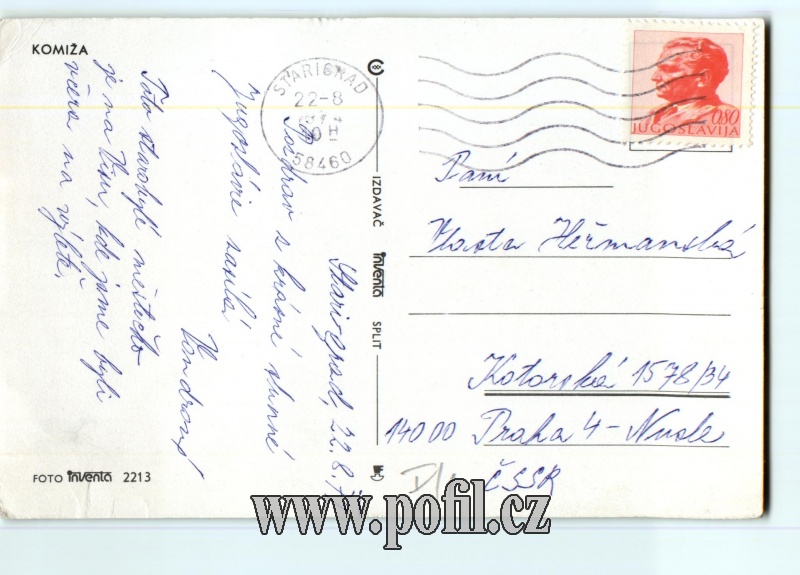 KOMIŽA
STARIGRAD
22-8
58460
0,80
JUGOSLAVIJA
Stari-grad, 22.8.7
Pozdrav z krásné slunné
Jugoslávie zasílá
Vondrovi
Toto starobylé městečko
je na Visu, kde jsme byli
včera na výletě.
Paní
Vlasta Heřmanská
Kotorská 1578/34
14000 Praha 4-Nusle
ČSSR
IZDAVAČ inventa SPLIT
FOTO inventa 2213
www.pofil.cz